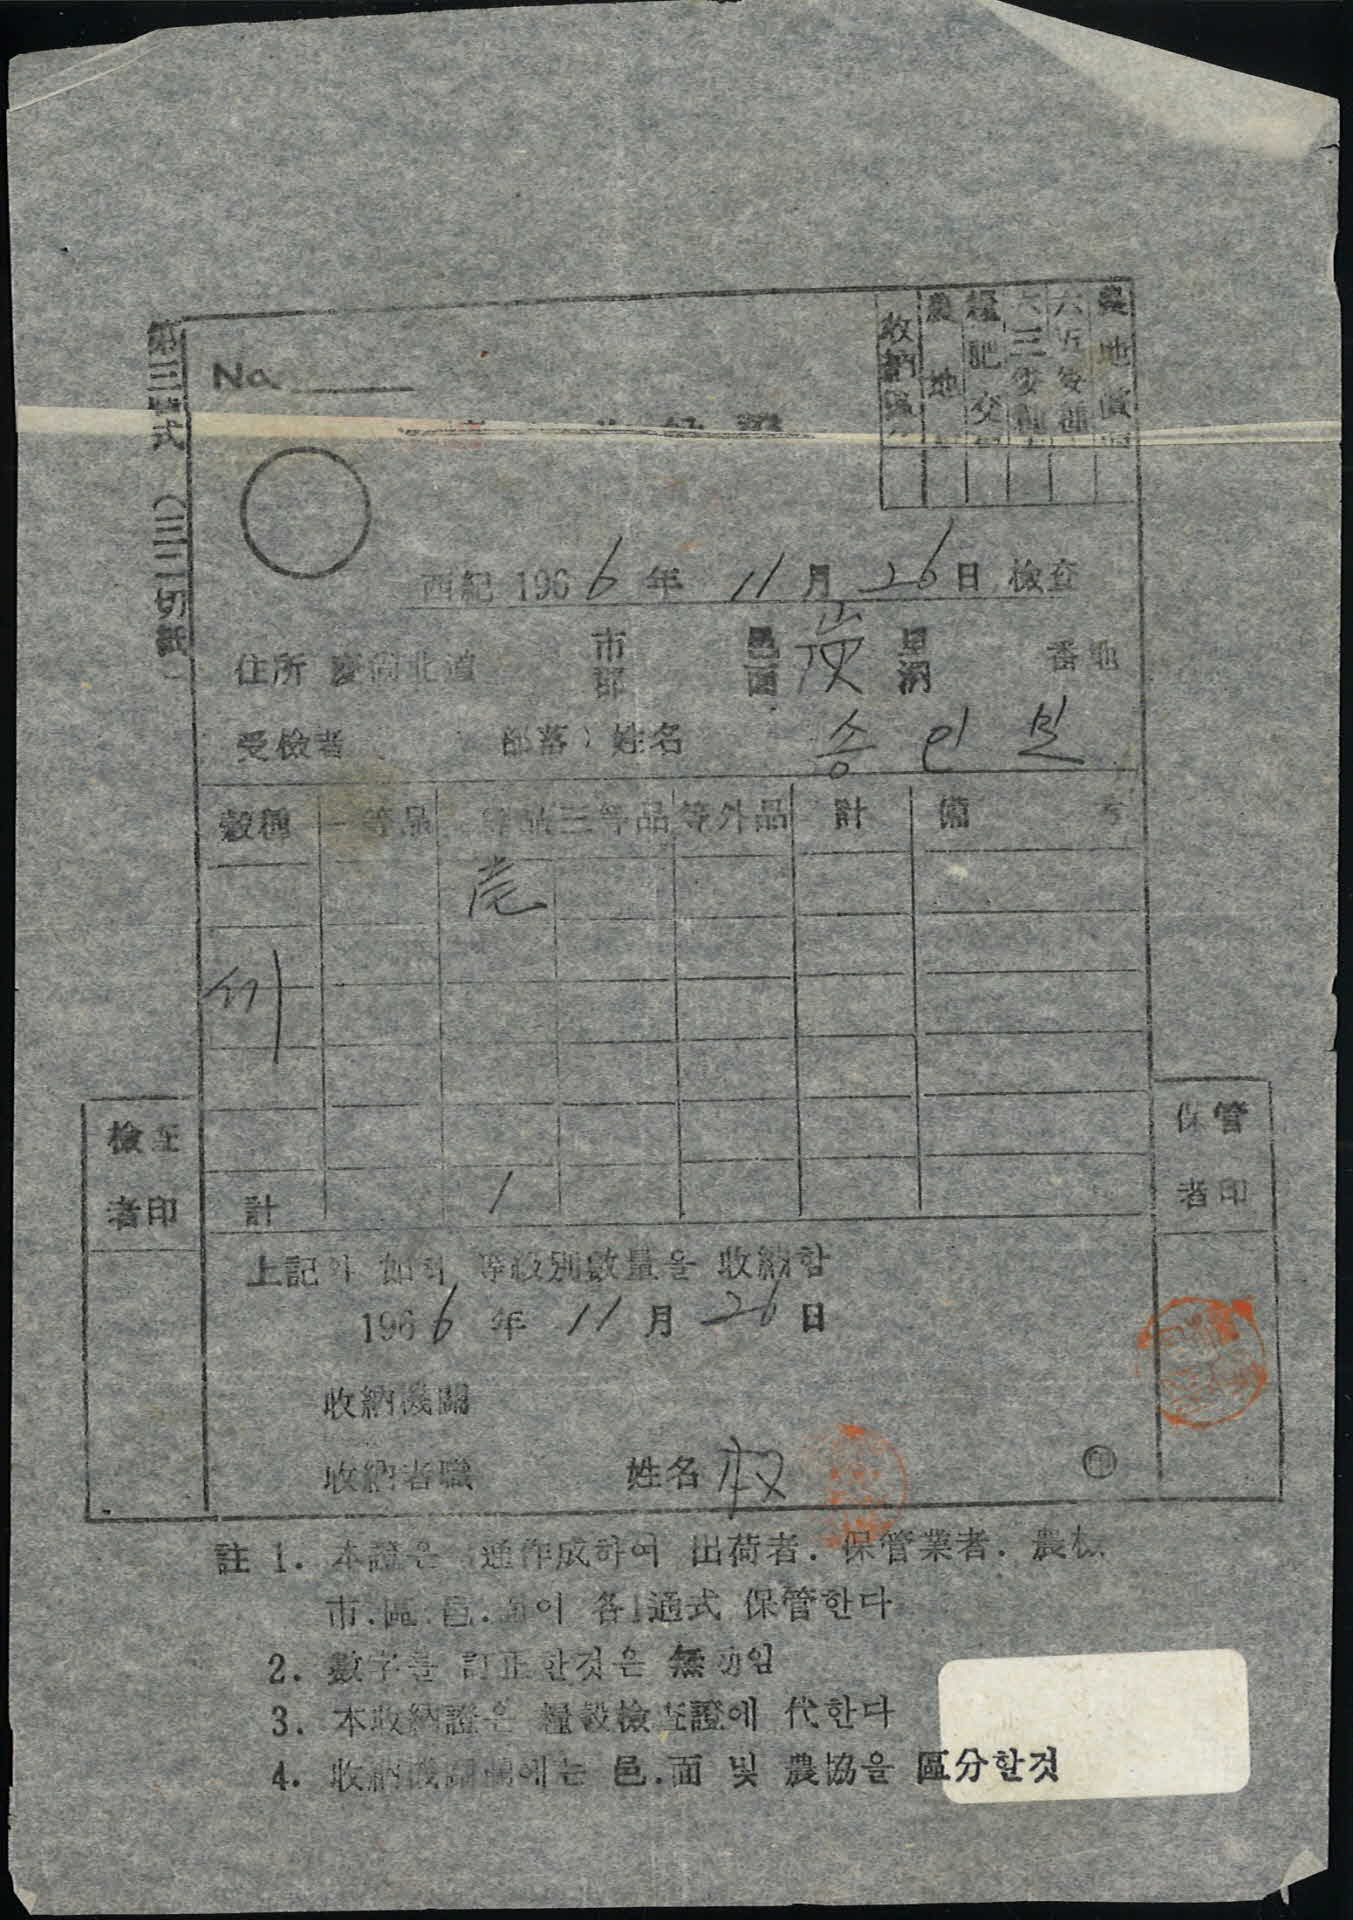 第三號式 (三二切紙)
No.
收納區分 農地 糧肥交 六三 六五 農地償
西紀 1966年 11月 26日 檢查
住所 慶尙北道 市郡 邑面 里洞 番地
受檢者 部落 姓名 송인
穀種 一等品 等品 三等品 等外品 計 備考
計 1
上記와 如히 等級別數量을 收納함
1966年 11月 26日
收納機關
收納者職 姓名 权 印
檢查者印
保管者印
註 1. 本證은 通作成하여 出荷者. 保管業者. 農檢
市.區.邑.面이 各1通式 保管한다
2. 數字를 訂正한것은 無効임
3. 本收納證은 糧穀檢查證에 代한다
4. 收納機關欄에는 邑.面 및 農協을 區分할것